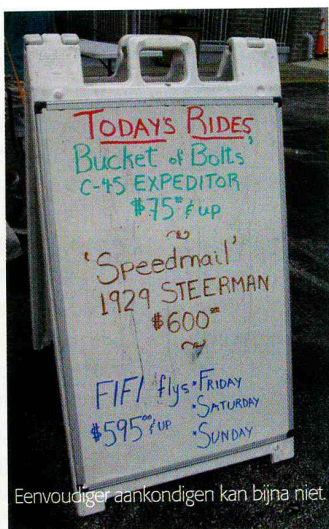 TODAY'S RIDES
'Bucket of Bolts'
C-45 EXPEDITOR
$75⁰⁰ & up
'Speedmail'
1929 STEERMAN
$600⁰⁰
FIFI flys • FRIDAY
• SATURDAY
$595⁰⁰ & UP
• SUNDAY
Eenvoudiger aankondigen kan bijna niet.